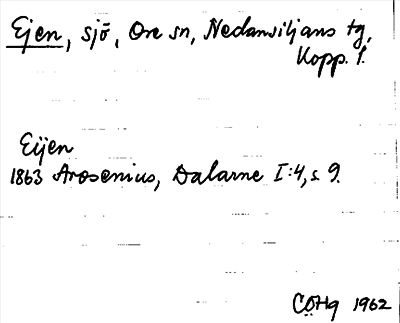 Ejen, sjö, Ore sn, Nedansiljans tg,
Kopp. l.
Eijen
1863 Arosenius, Dalarne I:4, s. 9.
CÖHg 1962